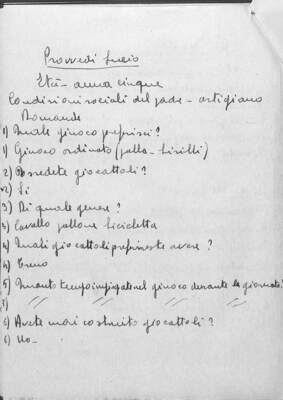 Provvedi Lucio
Età - anna cinque
Condizioni sociali del padre - artigiano
Domande
1) Quale giuoco preferisci?
1) Giuoco ordinato (palla - birilli)
2) Possedete giocattoli?
2) Si
3) Di quale genere?
3) Cavallo pallone bicicletta
4) Quali giocattoli preferireste avere?
4) Treno
5) Quanto tempo impiegate nel giuoco durante la giornata?
5) // // // //
6) Avete mai costruito giocattoli?
6) No-